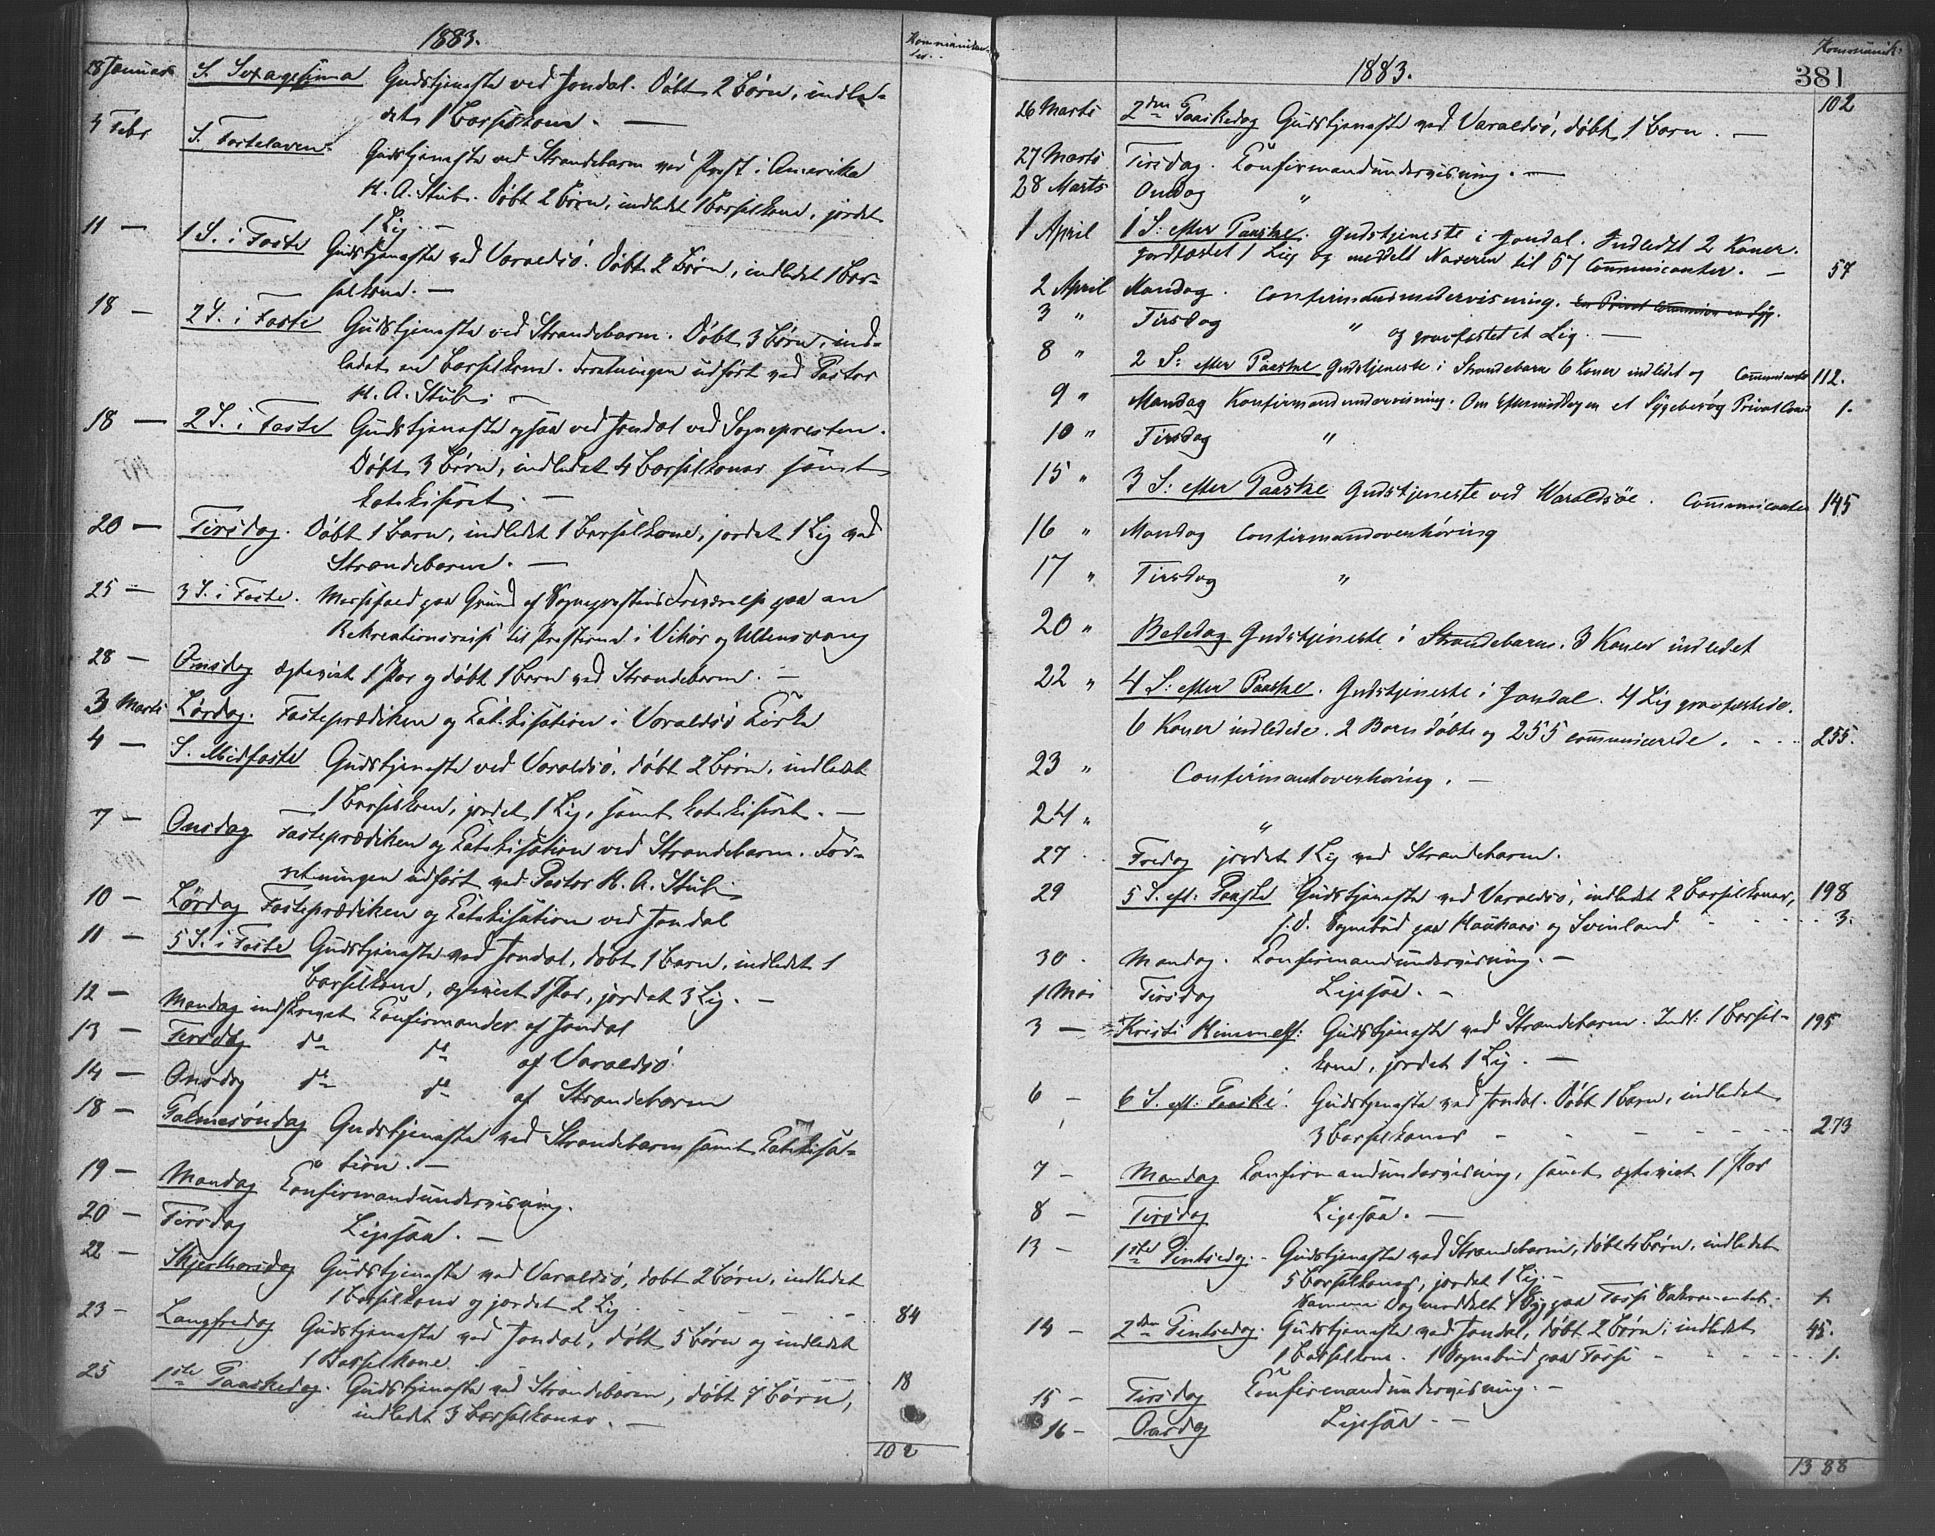 1883.
Kommunikan-
ter.
28 Januar S. Sexagesima Gudstjeneste ved Jondal. Døbt 2 Børn, indle-
det 1 Barselkone. —
4 Febr S. Fastelaven. Gudstjeneste ved Strandebarm ved Præst i Amerika
H. A. Stub. Døbt 2 Børn, indledet 1 Barselkone, jordet
1 Lig. —
11 — 1 S. i Faste Gudstjeneste ved Varaldsö. Døbt 2 Børn, indledet 1 Bar-
selkone. —
18 — 2 S. i Faste Gudstjeneste ved Strandebarm. Døbt 3 Børn, ind-
ledet en Barselkone. Forretningen udført ved Pastor
H. A. Stub. —
18 — 2 S. i Faste Gudstjeneste ogsaa ved Jondal ved Sognepresten.
Døbt 3 Børn, indledet 4 Barselkoner samt
katekiseret. —
20 — Tirsdag. Døbt 1 Barn, indledet 1 Barselkone, jordet 1 Lig ved
Strandebarm. —
25 — 3 S. i Faste. Messefald paa Grund af Sogneprestens Fraværelse paa en
Rekreationsreise til Presterne i Vikør og Ullensvang
28 — Onsdag ægteviet 1 Par og døbt 1 Barn ved Strandebarm. —
3 Marts Lørdag. Fasteprædiken og Katekisation i Varaldsö Kirke
4 — S. Midfaste Gudstjeneste ved Varaldsö, døbt 2 Børn, indledet
1 Barselkone, jordet 1 Lig, samt katekiseret. —
7 — Onsdag Fasteprædiken og Katekisation ved Strandebarm. For-
retningen udført ved Pastor H. A. Stub
10 — Lørdag Fasteprædiken og Katekisation ved Jondal
11 — 5 S. i Faste Gudstjeneste ved Jondal, døbt 1 Barn, indledet 1
Barselkone, ægteviet 1 Par, jordet 3 Lig. —
12 — Mandag indskrevet Konfirmander af Jondal
13 — Tirsdag do do af Varaldsö
14 — Onsdag do do af Strandebarm
18 — Palmesöndag Gudstjeneste ved Strandebarm samt Katekisa-
tion. —
19 — Mandag Konfirmandundervisning.
20 — Tirsdag Ligesaa. —
22 — Skjærthorsdag Gudstjeneste ved Varaldsö, døbt 2 Børn, indledet
1 Barselkone og jordet 2 Lig - - - - 84
23 — Langfredag Gudstjeneste ved Jondal, døbt 5 Børn og indledet
1 Barselkone. - - - 18
25 1ste Paaskedag. Gudstjeneste ved Strandebarm, døbt 7 Børn,
indledet 3 Barselkoner. —
102
1883.
Kommunik:
381
102
26 Marts 2den Paaskedag Gudstjeneste ved Varaldsö, døbt 1 Barn. —
27 Marts Tirsdag. Konfirmandundervisning. —
28 Marts Onsdag "
1 April 1 S: efter Paaske. Gudstjeneste i Jondal. Indledet 2 Koner.
Jordfæstet 1 Lig og meddelt Naveren til 57 Communicanter. — 57
2 April Mandag. Confirmandundervisning. En Privat Communion en Syg.
3 " Tirsdag " og gravfæstet et Lig. —
8 " 2 S: efter Paaske Gudstjeneste i Strandebarm 6 Koner indledet og Communicanter 112.
9 " Mandag Konfirmandundervisning. Om Eftermiddagen et Sygebesøg Privat Com: 1.
10 " Tirsdag "
15 " 3 S: efter Paaske Gudstjeneste ved Waraldsöe. Communicanter 145
16 " Mandag Confirmandoverhöring
17 " Tirsdag "
20 " Bededag Gudstjeneste i Strandebarm. 3 Koner indledet
22 " 4 S: efter Paaske. Gudstjeneste i Jondal. 4 Lig gravfæstede.
6 Koner indledede. 2 Børn døbte og 255 communicerede. - - - 255.
23 " Confirmantoverhøring. —
24 " "
27 Fredag jordet 1 Lig ved Strandebarm.
29 5 S. eft: Paaske Gudstjeneste ved Varaldsö, indledet 2 Barselkoner, 198
s. d. Sognebud paa Haukaas og Svinland - - - 3.
30 Mandag. Konfirmandundervisning. —
1 Mai Tirsdag Ligesaa. —
3 — Kristi Himmelf: Gudstjeneste ved Strandebarm. Indl: 1 Barsel- 195
kone, jordet 1 Lig. —
6 — 6 S. eft: Paaske. Gudstjeneste ved Jondal. Døbt 1 Barn, indledet
3 Barselkoner - - - - 273
7 — Mandag Konfirmandundervisning, samt ægteviet 1 Par
8 — Tirsdag Ligesaa. —
13 — 1ste Pintsedag. - Gudstjeneste ved Strandebarm, døbt 4 Børn, indledet
5 Barselkoner, jordet 1 Lig. —
Samme Dag meddelt 1 Syg paa Fosse Sakramentet. 1.
14 — 2den Pintsedag. Gudstjeneste ved Jondal, døbt 2 Børn, indledet 45.
1 Barselkone. 1 Sognebud paa Fosse - - - 1.
15 — Tirsdag Konfirmandundervisning. —
16 — Onsdag Ligesaa. —
1388